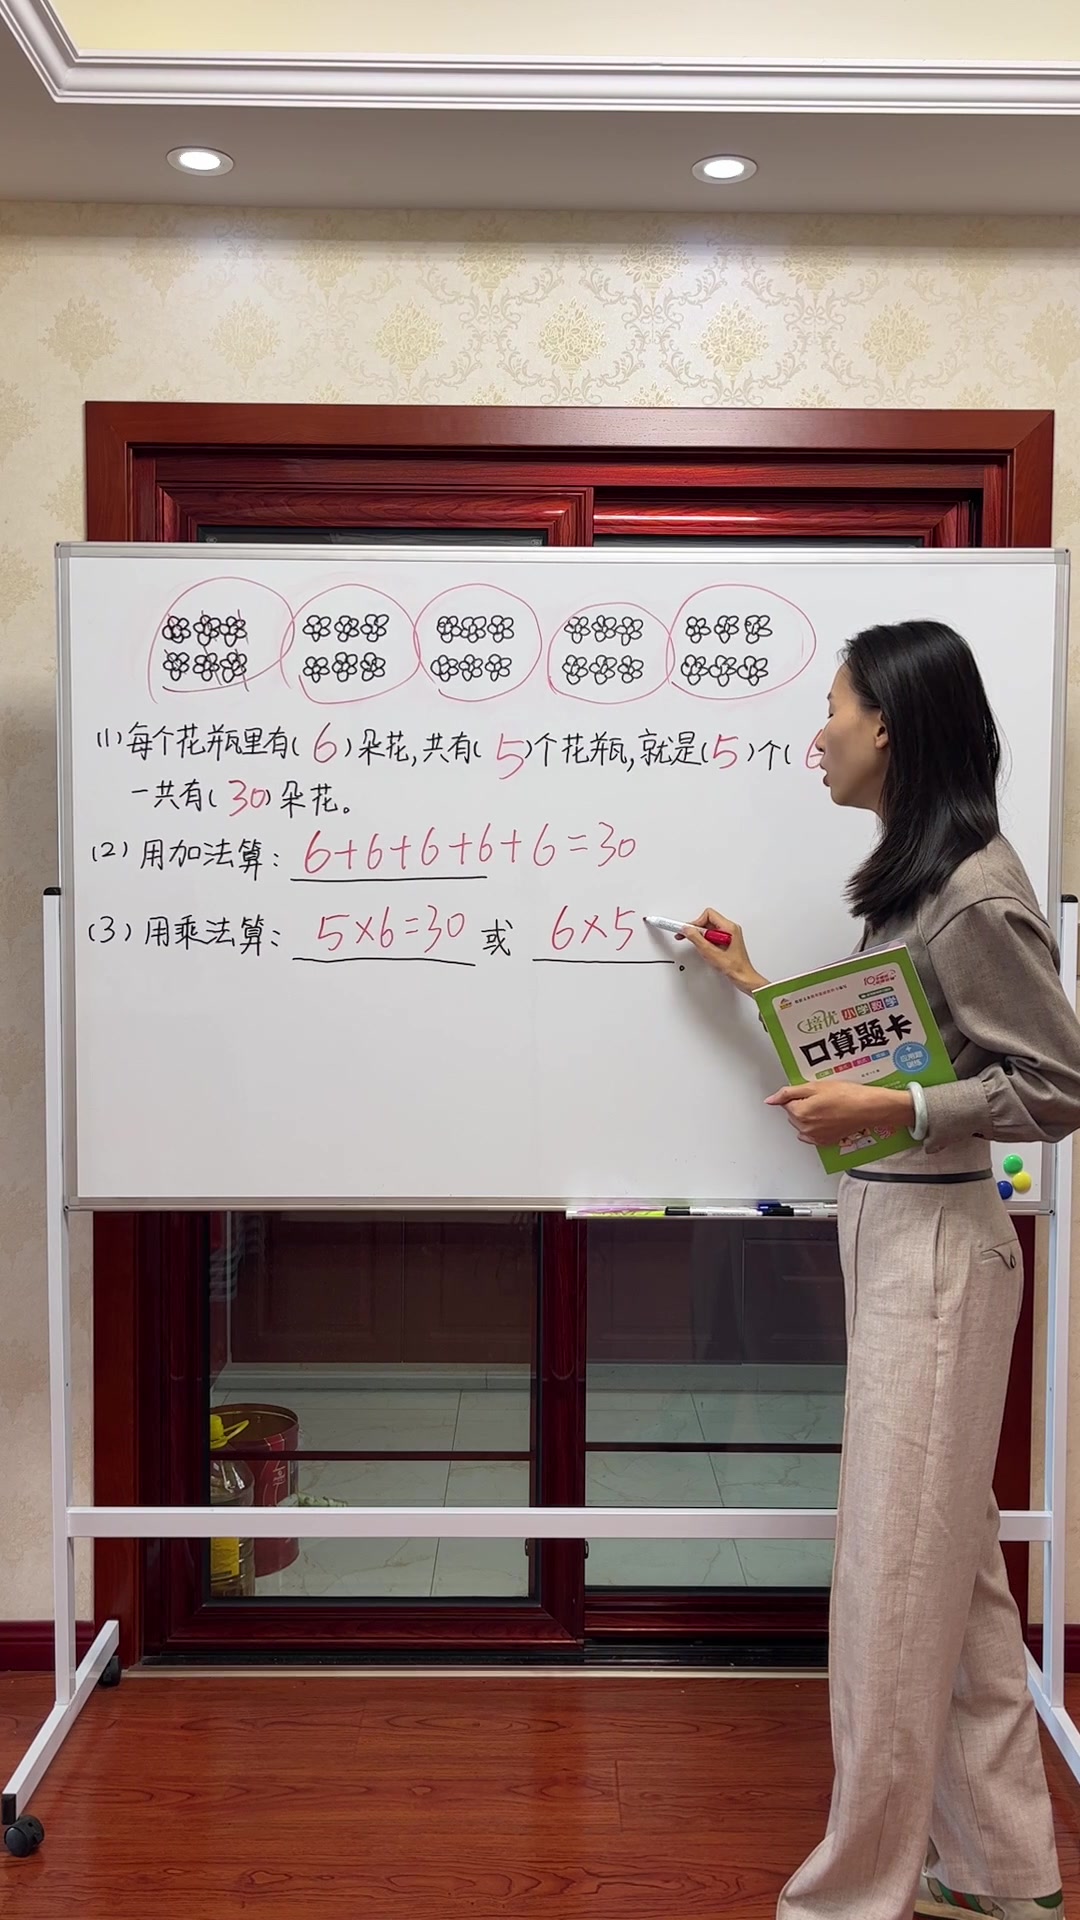 (1)每个花瓶里有(6)朵花,共有(5)个花瓶,就是(5)个(6
一共有(30)朵花。
(2)用加法算:6+6+6+6+6=30
(3)用乘法算:5×6=30或 6×5 。
培优小学数学
口算题卡
+
应用题
训练